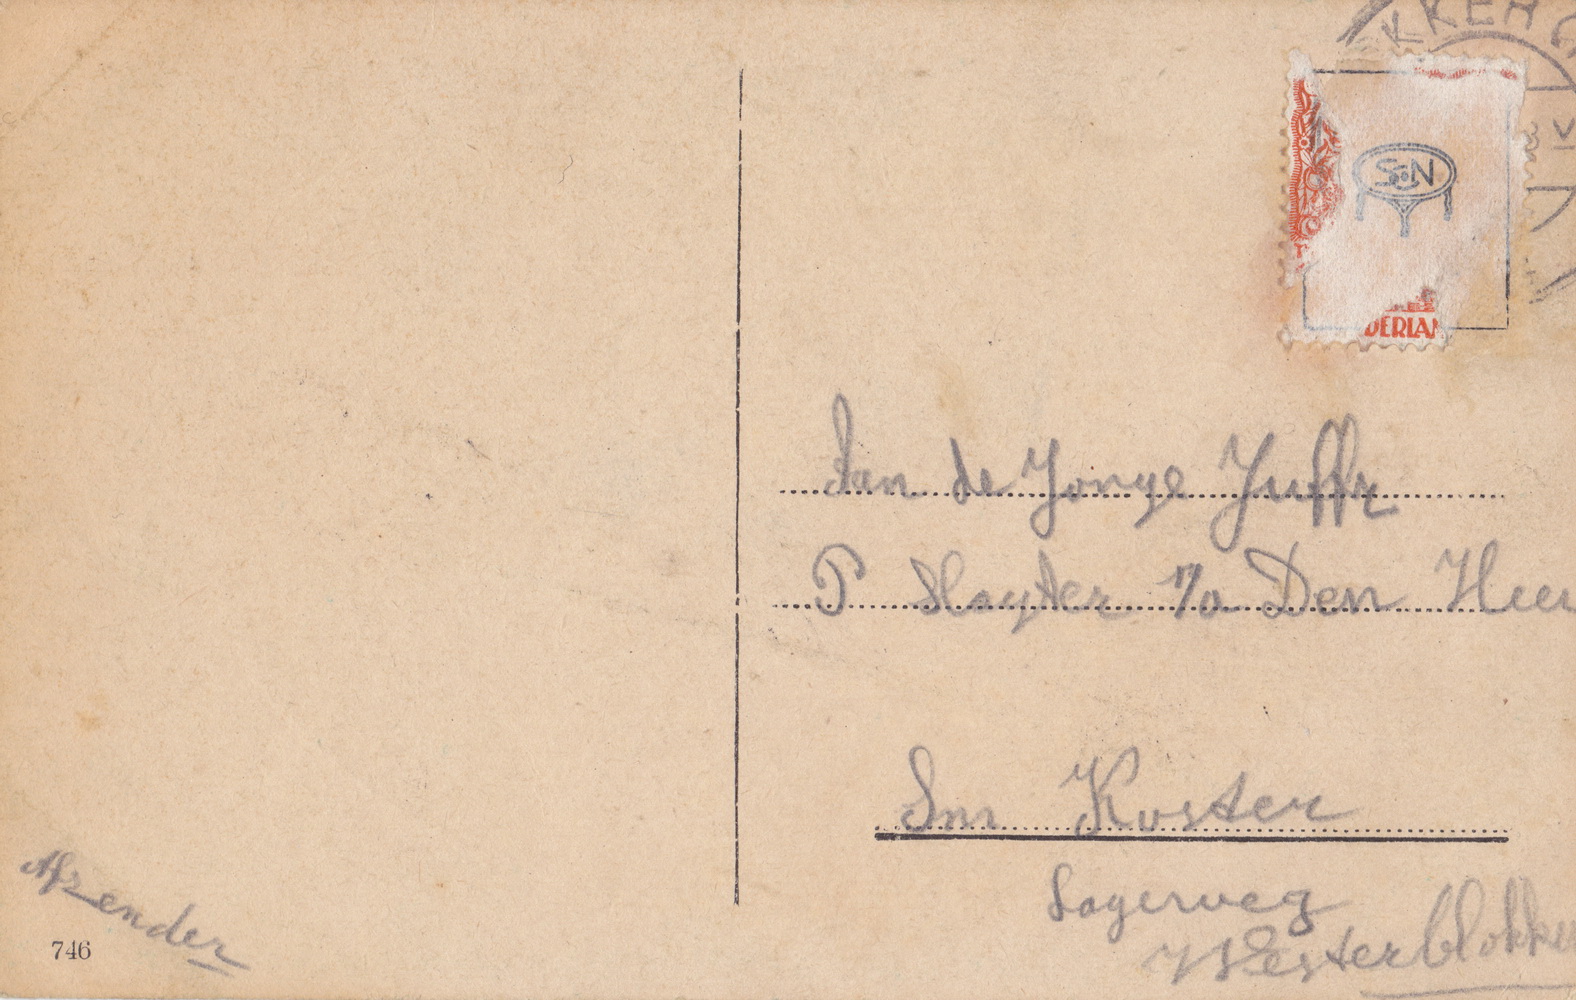 KKEN
S&N
DERLAN
Aan de Jonge Juffr
P Slagter p/a Den Heer
Sm Koster
Lagerweg
Westerblokker
Afzender
746